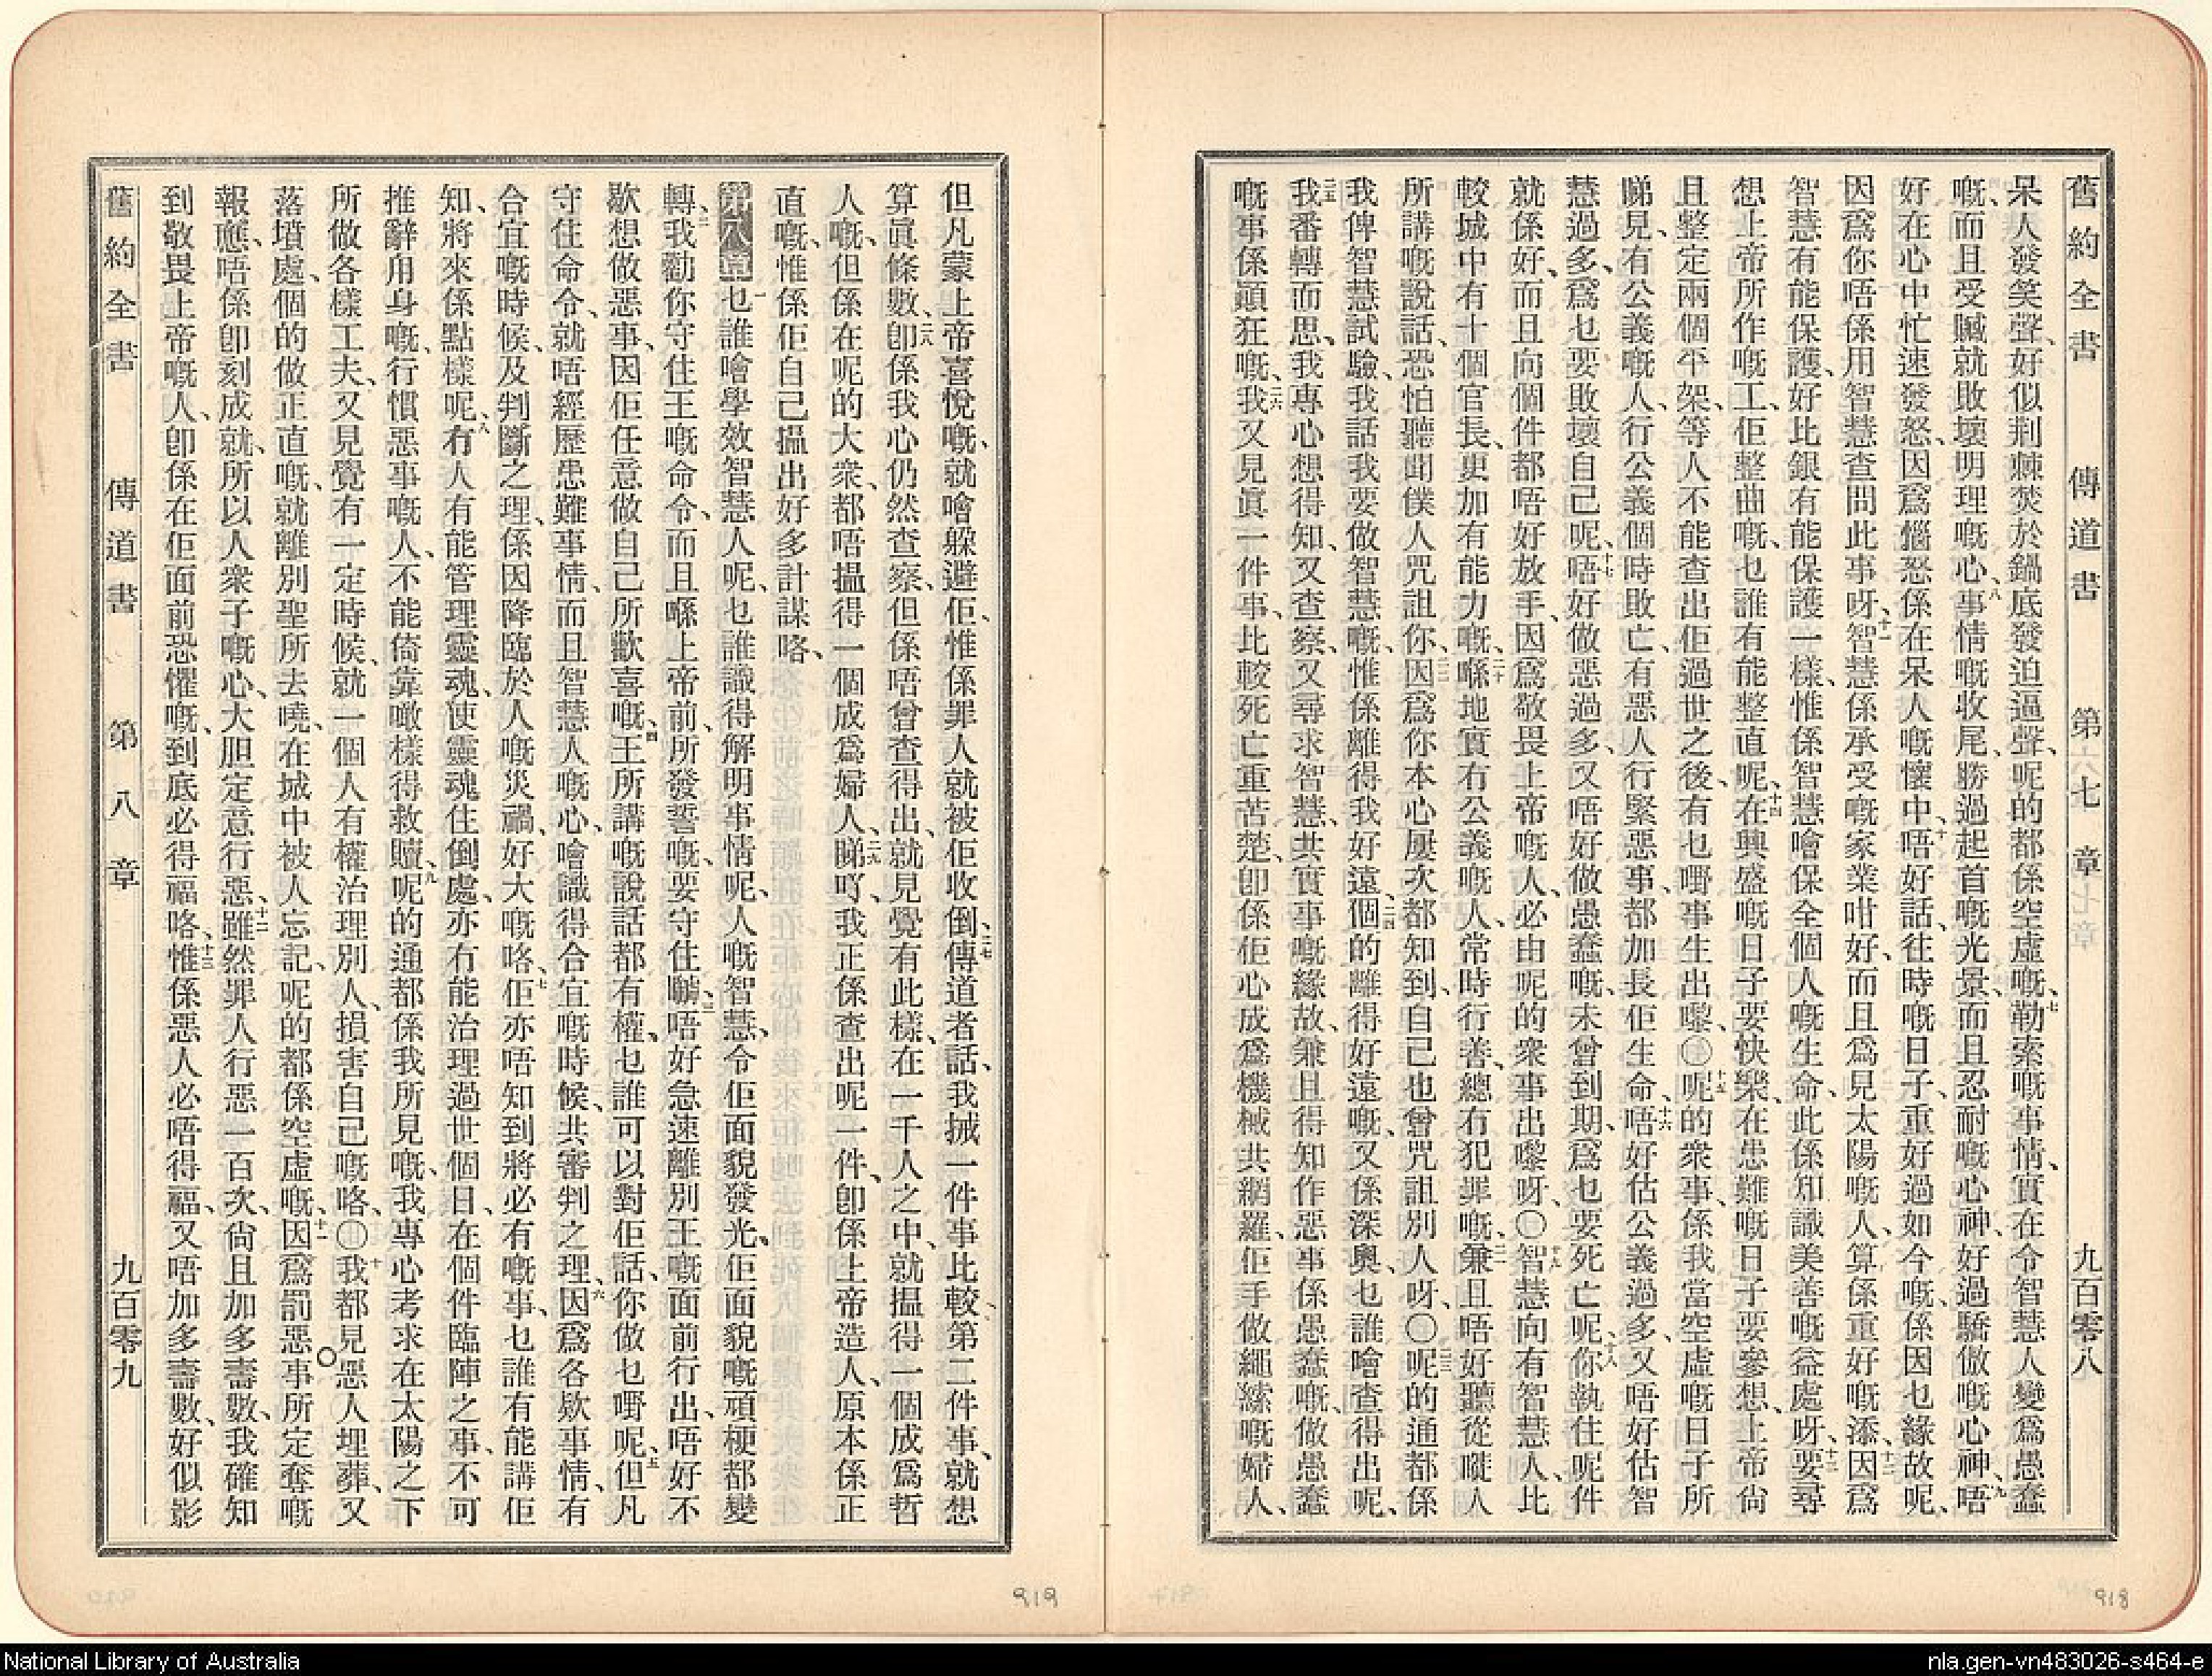 舊約全書 傳道書 第七章 九百零八
呆人發笑聲、好似荆棘焚於鍋底發迫逼聲、呢的都係空虛嘅、七勒索嘅事情、實在令智慧人變爲愚蠢
嘅、而且受贓就敗壞明理嘅心、八事情嘅收尾、勝過起首嘅光景、而且忍耐嘅心神、好過驕傲嘅心神、九唔
好在心中忙速發怒、因爲惱怒係在呆人嘅懷中、十唔好話、往時嘅日子、重好過如今嘅、係因乜緣故呢、
因爲你唔係用智慧查問此事呀、十一智慧係承受嘅家業咁好、而且爲見太陽嘅人、算係重好嘅添、十二因爲
智慧有能保護、好比銀有能保護一樣、惟係智慧噲保全個人嘅生命、此係知識美善嘅益處呀、十三要尋
想上帝所作嘅工、佢整曲嘅、乜誰有能整直呢、十四在興盛嘅日子要快樂、在患難嘅日子要參想、上帝尙
且整定兩個平架、等人不能查出佢過世之後、有乜嘢事生出嚟、〇十五呢的衆事、係我當空虛嘅日子所
睇見、有公義嘅人、行公義個時敗亡、有惡人行緊惡事、都加長佢生命、十六唔好估公義過多、又唔好估智
慧過多、爲乜要敗壞自己呢、十七唔好做惡過多、又唔好做愚蠢嘅、未曾到期、爲乜要死亡呢、十八你執住呢件
就係好、而且向個件都唔好放手、因爲敬畏上帝嘅人、必由呢的衆事出嚟呀、〇十九智慧向有智慧人、比
較城中有十個官長、更加有能力嘅、二十喺地實冇公義嘅人、常時行善、總冇犯罪嘅、二一兼且唔好聽從嘥人
所講嘅說話、恐怕聽聞僕人咒詛你、二二因爲你本心屢次都知到、自己也曾咒詛別人呀、〇二三呢的通都係
我俾智慧試驗、我話我要做智慧嘅、惟係離得我好遠、二四個的離得好遠嘅、又係深奧、乜誰噲查得出呢、
二五我番轉而思、我專心想得知、又查察、又尋求智慧、共實事嘅緣故、兼且得知作惡事係愚蠢嘅、做愚蠢
嘅事係顚狂嘅、二六我又見眞一件事、比較死亡重苦楚、卽係佢心成爲機械共網羅、佢手做繩綠嘅婦人、
但凡蒙上帝喜悅嘅、就噲躱避佢、惟係罪人就被佢收倒、二七傳道者話、我搣一件事比較第二件事、就想
算眞條數、二八卽係我心仍然查察、但係唔曾查得出、就見覺有此樣、在一千人之中、就搵得一個成爲哲
人嘅、但係在呢的大衆、都唔搵得一個成爲婦人、二九睇吓、我正係查出呢一件、卽係上帝造人、原本係正
直嘅、惟係佢自己搵出好多計謀咯、
第八章一乜誰噲學效智慧人呢、乜誰識得解明事情呢、人嘅智慧、令佢面貌發光、佢面貌嘅頑梗都變
轉、二我勸你守住王嘅命令、而且喺上帝前、所發誓嘅、要守住嚹、三唔好急速離別王嘅面前行出、唔好不
歇想做惡事、因佢任意做自己所歡喜嘅、四王所講嘅說話都有權、乜誰可以對佢話、你做乜嘢呢、五但凡
守住命令、就唔經歷患難事情、而且智慧人嘅心、噲識得合宜嘅時候、共審判之理、六因爲各欵事情、有
合宜嘅時候、及判斷之理、係因降臨於人嘅災禍、好大嘅咯、七佢亦唔知到將必有嘅事、乜誰有能講佢
知、將來係點樣呢、八冇人有能管理靈魂、使靈魂住倒處、亦冇能治理過世個日、在個件臨陣之事、不可
推辭用身嘅、行慣惡事嘅人、不能倚靠噉樣得救贖、九呢的通都係我所見嘅、我專心考求在太陽之下
所做各樣工夫、又見覺有一定時候、就一個人有權治理別人、損害自己嘅咯、〇十我都見惡人埋葬、又
落墳處、個的做正直嘅、就離別聖所去嘵、在城中被人忘記、呢的都係空虛嘅、十一因爲罰惡事所定奪嘅
報應、唔係卽刻成就、所以人衆子嘅心、大胆定意行惡、十二雖然罪人行惡一百次、尙且加多壽數、我確知
到敬畏上帝嘅人、卽係在佢面前恐懼嘅、到底必得福咯、十三惟係惡人必唔得福、又唔加多壽數、好似影
舊約全書 傳道書 第八章 九百零九
919
918
National Library of Australia
nla.gen-vn483026-s464-e